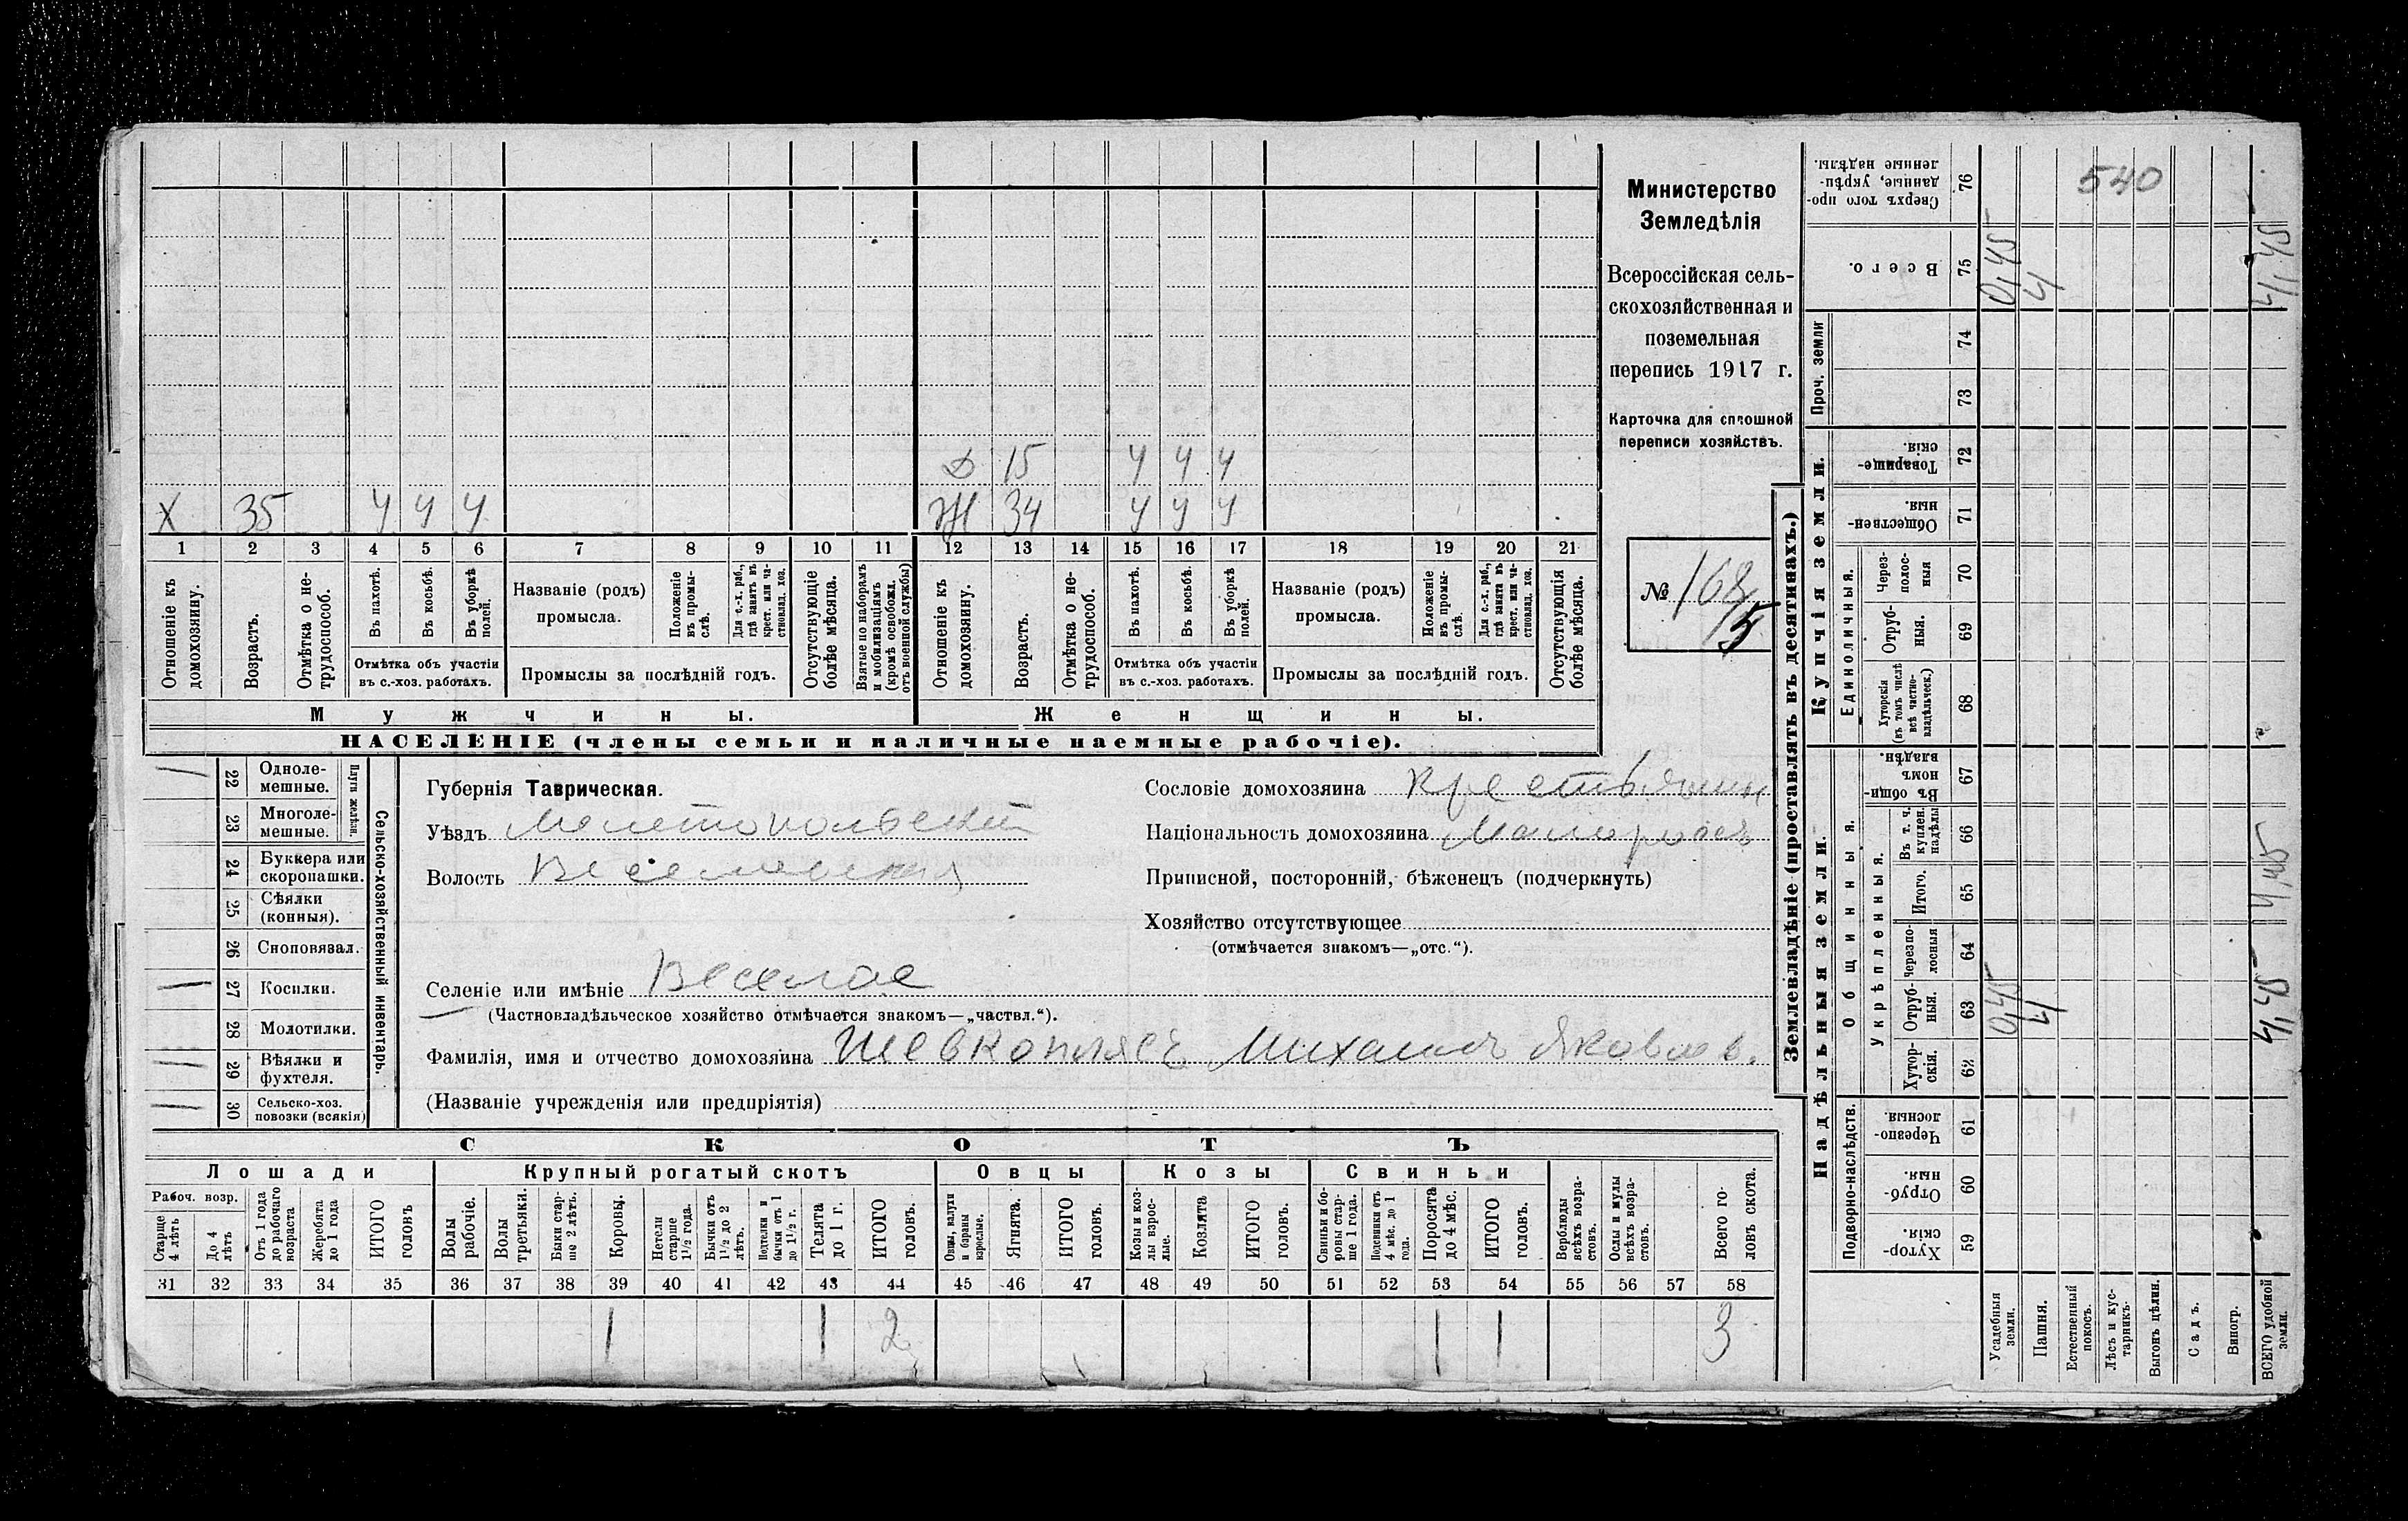 Министерство
Земледѣлія
Всероссійская сель-
скохозяйственная и
поземельная
перепись 1917 г.
Карточка для сплошной
переписи хозяйствъ.
№ 168
15
Д 15 У У У
Х 35 У У У Ж 34 У У У
1 2 3 4 5 6 7 8 9 10 11 12 13 14 15 16 17 18 19 20 21
Отношеніе къ домохозяину.
Возрастъ.
Отмѣтка о не-трудоспособ.
Въ пахотѣ.
Въ косьбѣ.
Въ уборкѣ полей.
Отмѣтка объ участіи
въ с.-хоз. работахъ.
Названіе (родъ)
промысла.
Положеніе въ промы-слѣ.
Для с.-х. раб., гдѣ занятъ въ крест. или ча-стновлад. хоз.
Промыслы за послѣдній годъ.
Отсутствующіе болѣе мѣсяца.
Взятые по наборамъ и мобилизаціямъ (кромѣ освобожд. отъ военной службы)
Отношеніе къ домохозяину.
Возрастъ.
Отмѣтка о не-трудоспособ.
Въ пахотѣ.
Въ косьбѣ.
Въ уборкѣ полей.
Отмѣтка объ участіи
въ с.-хоз. работахъ.
Названіе (родъ)
промысла.
Положеніе въ промы-слѣ.
Для с.-х. раб., гдѣ занятъ въ крест. или ча-стновлад. хоз.
Промыслы за послѣдній годъ.
Отсутствующія болѣе мѣсяца.
Мужчины. Женщины.
НАСЕЛЕНІЕ (члены семьи и наличные наемные рабочіе).
Сельско-хозяйственный инвентарь.
Плуги желѣзн.
22 Одноле-мешные.
23 Многоле-мешные.
24 Буккера или скоропашки.
25 Сѣялки (конныя).
26 Сноповязал.
27 Косилки.
28 Молотилки.
29 Вѣялки и фухтеля.
30 Сельско-хоз. повозки (всякія)
Губернія Таврическая.
Уѣздъ Мелетопольскій
Волость Веселовская
Селеніе или имѣніе Веселое
(Частновладѣльческое хозяйство отмѣчается знакомъ—„частвл.“).
Фамилія, имя и отчество домохозяина Шевкоплясъ Михаилъ Яковлев.
(Названіе учрежденія или предпріятія)
Сословіе домохозяина Крестьянин
Національность домохозяина Малоросъ
Приписной, посторонній, бѣженецъ (подчеркнуть)
Хозяйство отсутствующее
(отмѣчается знакомъ—„отс.“).
СКОТЪ
Лошади Крупный рогатый скотъ Овцы Козы Свиньи
Рабоч. возр.
Старше 4 лѣтъ
До 4 лѣтъ
Отъ 1 года до рабочаго возраста
Жеребята до 1 года
ИТОГО головъ
Волы рабочіе.
Волы третьяки.
Быки стар-ше 2 лѣтъ.
Коровы.
Нетели старше 1½ года.
Бычки отъ 1½ до 2 лѣтъ.
Подтелки и бычки отъ 1 до 1½ г.
Телята до 1 г.
ИТОГО головъ.
Овцы, валухи и бараны взрослые.
Ягнята.
ИТОГО головъ.
Козы и коз-лы взрос-лые.
Козлята
ИТОГО головъ.
Свиньи и бо-ровы стар-ше 1 года.
Подсвинки отъ 4 мѣс. до 1 года.
Поросята до 4 мѣс.
ИТОГО головъ.
Верблюды всѣхъ возра-стовъ.
Ослы и мулы всѣхъ возра-стовъ.
Всего го-ловъ скота.
31 32 33 34 35 36 37 38 39 40 41 42 43 44 45 46 47 48 49 50 51 52 53 54 55 56 57 58
1 1 2 1 1 3
Землевладѣніе (проставлять въ десятинахъ.)
Купчія земли.
Надѣльныя земли.
Сверхъ того про-данные, укрѣп-ленные надѣлы. 76
Всего. 75
Проч. земли 74
73
Товарище-скія. 72
Обществен-ныя. 71
Единоличныя.
Через-полос-ныя 70
Отруб-ныя. 69
Хуторскія (въ томъ числѣ всѣ частно-владѣльческ.) 68
Общинныя.
Въ общи-номъ владѣн. 67
Укрѣпленныя.
Въ т. ч. куплен. надѣлы 66
Итого. 65
Черезпо-лосныя 64
Отруб-ныя. 63
Хутор-скія. 62
Подворно-наслѣдств.
Черезпо-лосныя 61
Отруб-ныя. 60
Хутор-скія. 59
Усадебныя земли.
Пашня.
Естественный покосъ.
Лѣсъ и кус-тарникъ.
Выгонъ цѣлин.
Садъ.
Виногр.
ВСЕГО удобной земли.
540
0,45
4
4,45
0,45
4
4,45
4,45